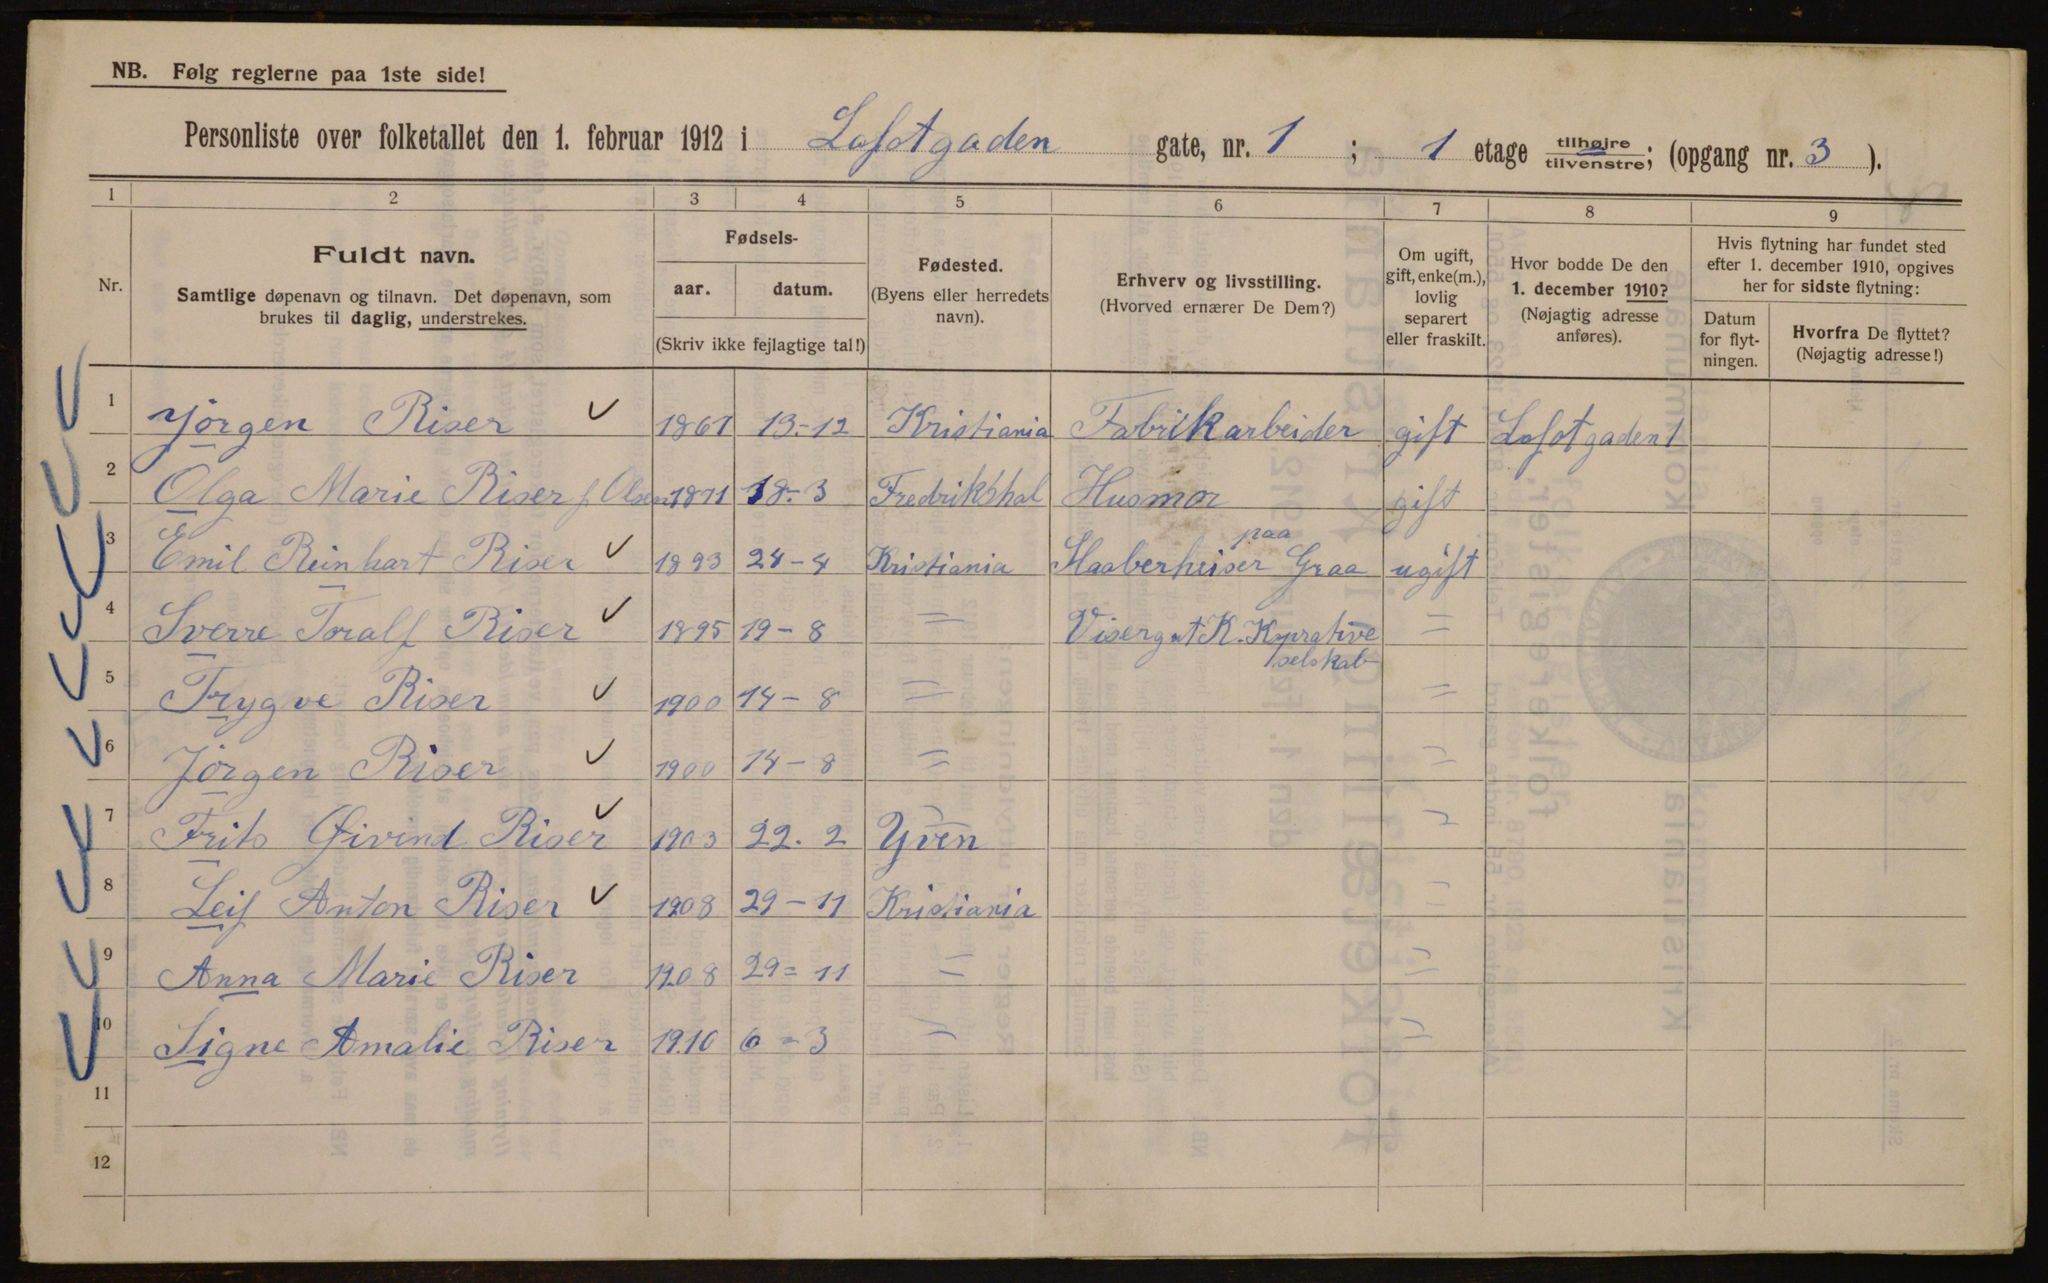 NB. Følg reglerne paa 1ste side!
Personliste over folketallet den 1. februar 1912 i Lofotgaden gate, nr. 1 ; 1 etage tilhøjre/tilvenstre; (opgang nr. 3 ).
1 2 3 4 5 6 7 8 9
Nr.
Fuldt navn.
Samtlige døpenavn og tilnavn. Det døpenavn, som
brukes til daglig, understrekes.
Fødsels-
aar. datum.
(Skriv ikke fejlagtige tal!)
Fødested.
(Byens eller herredets
navn).
Erhverv og livsstilling.
(Hvorved ernærer De Dem?)
Om ugift,
gift, enke(m.),
lovlig
separert
eller fraskilt.
Hvor bodde De den
1. december 1910?
(Nøjagtig adresse
anføres).
Hvis flytning har fundet sted
efter 1. december 1910, opgives
her for sidste flytning:
Datum
for flyt-
ningen.
Hvorfra De flyttet?
(Nøjagtig adresse!)
1 Jörgen Riser 1867 13-12 Kristiania Fabrikarbeider gift Lofotgaden 1
2 Olga Marie Riser f. Olsen 1871 18-3 Fredrikshal Husmor gift
3 Emil Reinhart Riser 1893 24-4 Kristiania paa Graa ugift
4 Sverre Toralf Riser 1895 19-8 〃 Visergut K. Koprative selskab 〃
5 Trygve Riser 1900 14-8 〃 〃
6 Jörgen Riser 1900 14-8 〃 〃
7 Frits Øivind Riser 1903 22.2 〃
8 Leif Anton Riser 1908 29-11 Kristiania 〃
9 Anna Marie Riser 1908 29=11 〃 〃
10 Signe Amalie Riser 1910 6=3 〃 〃
11
12